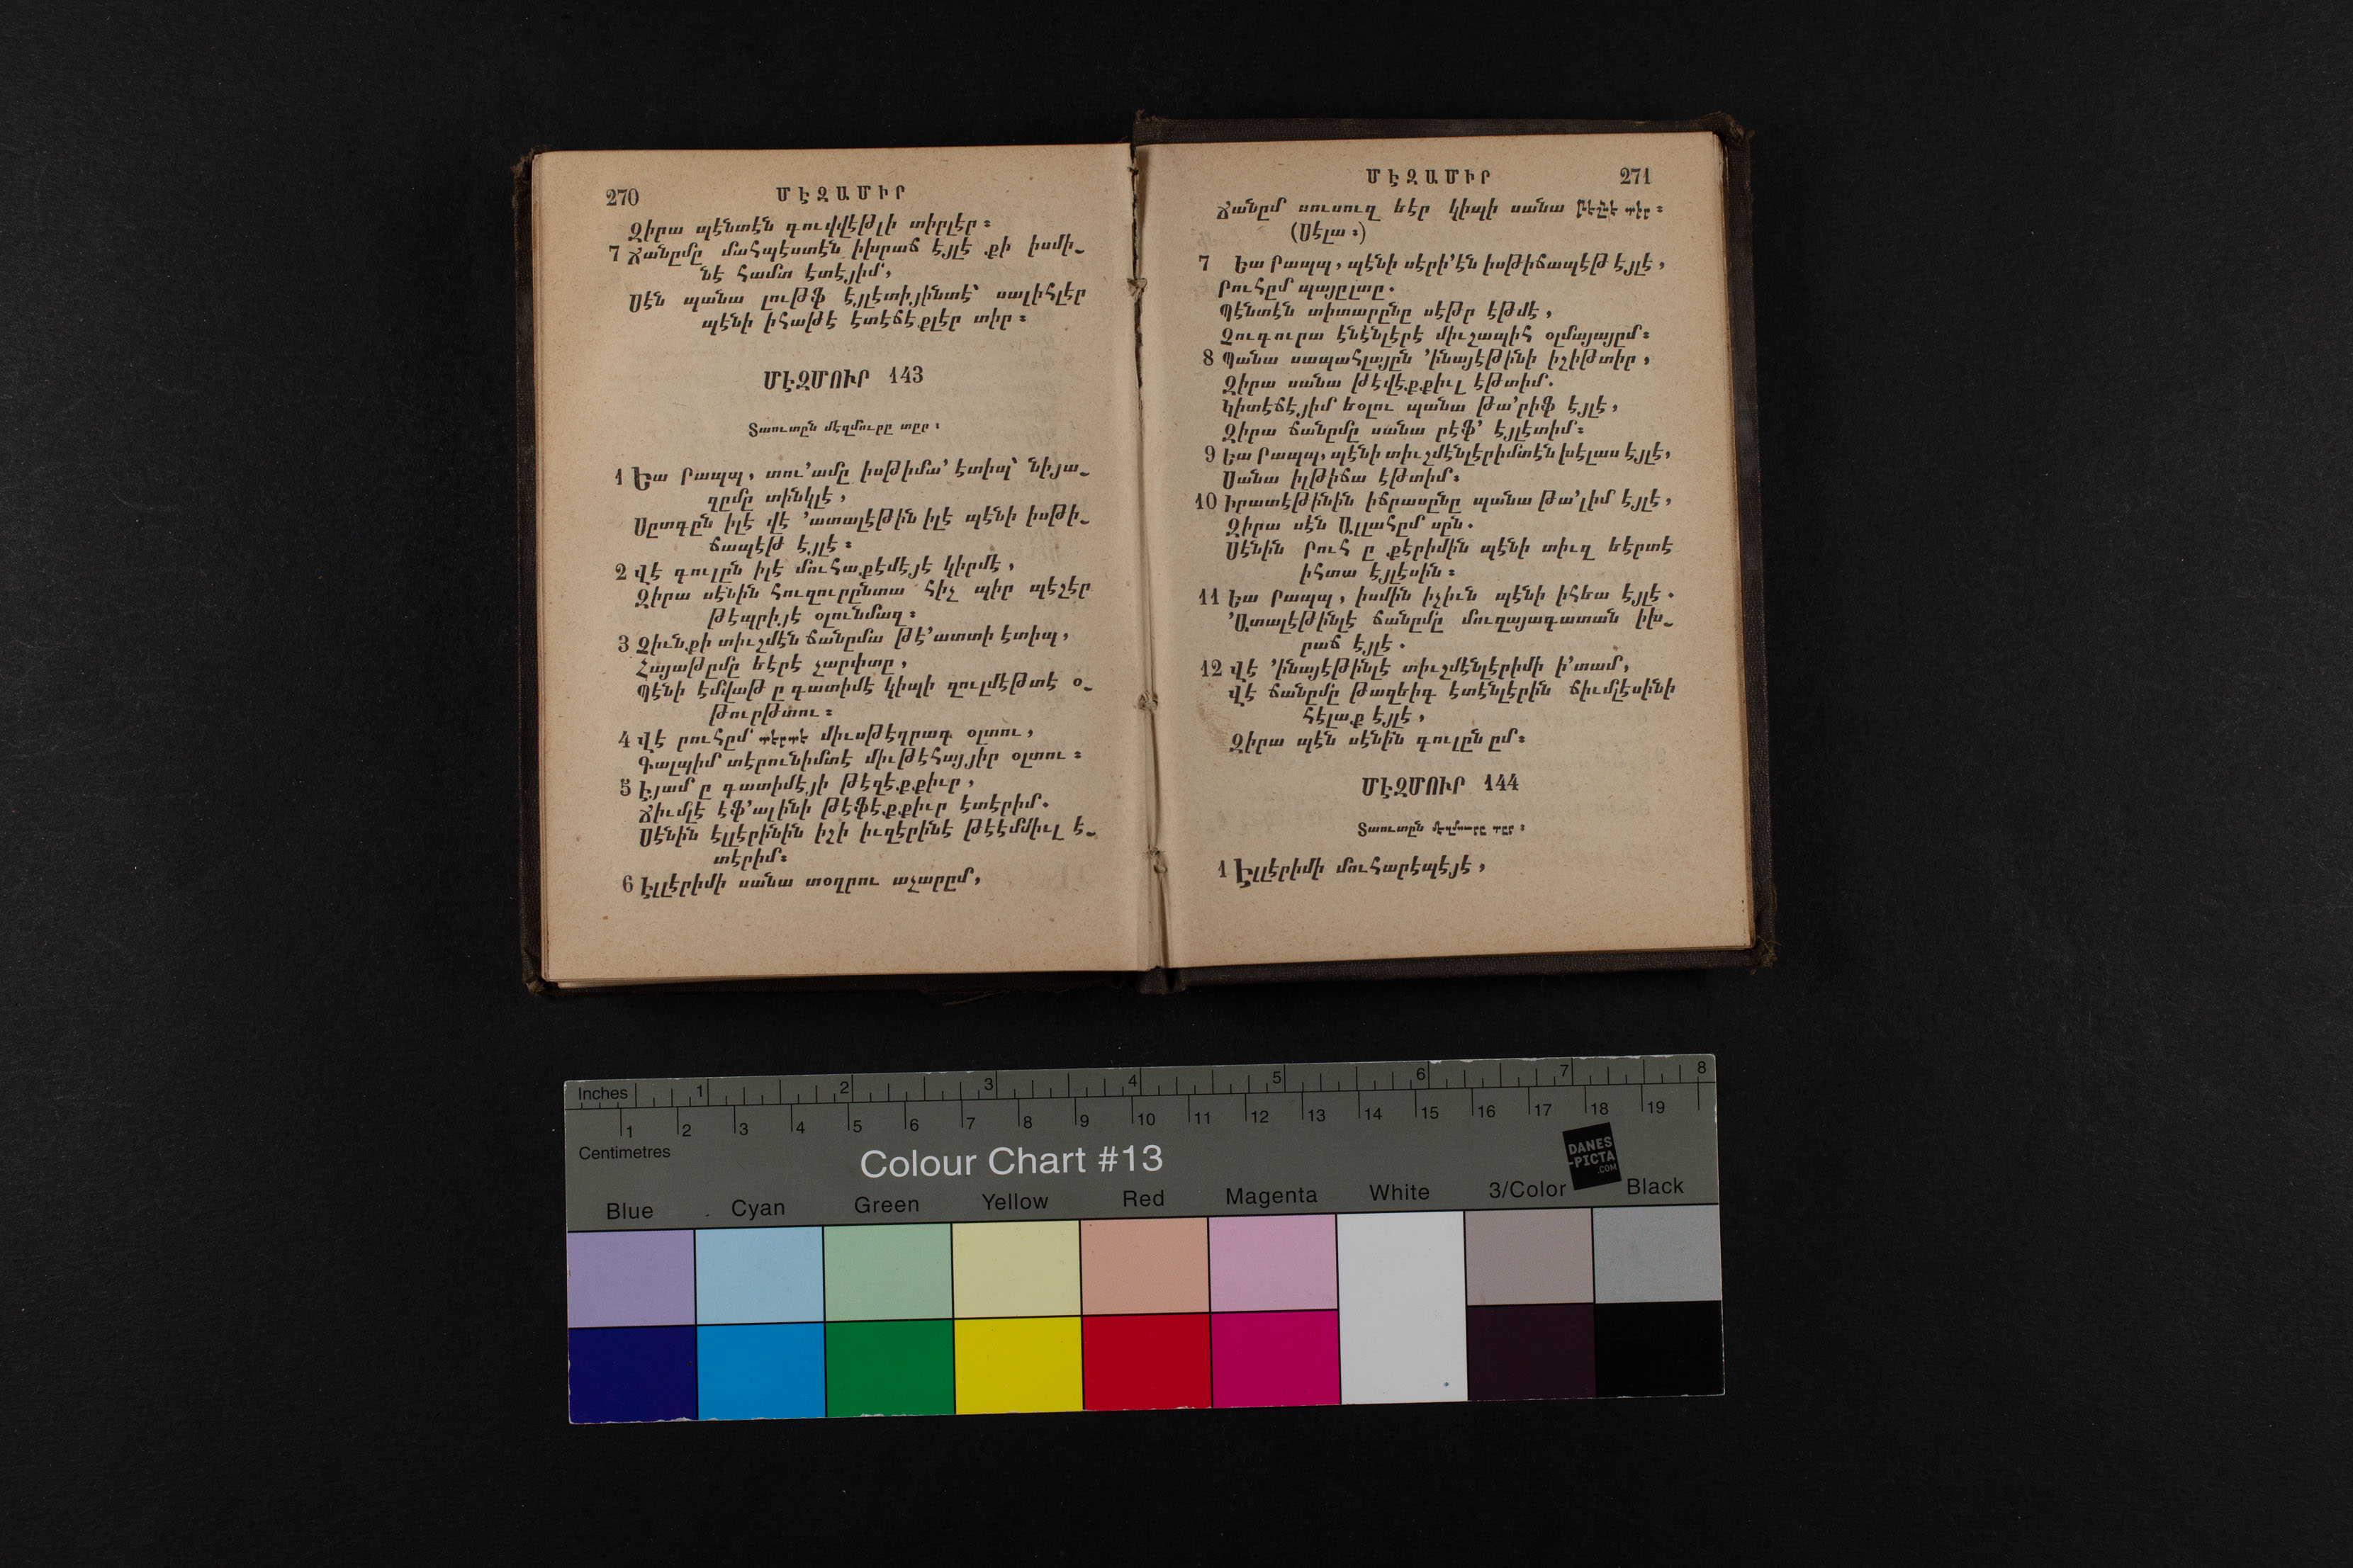 270
ՄԷԶԱՄԻՐ
Զիրա պէնտէն գուվվէթլի տիրլէր։
7 Ճանըմը մահպէստէն իխրաճ էյլէ քի իսմի֊
նէ համտ էտէյիմ,
Սէն պանա լութֆ էյլէտիյինտէ՝ սալիհլէր
պէնի իհաթէ էտէճէքլէր տիր։
ՄԷԶՄՈՒՐ 143
Տաուտըն մէզմուրը տըր։
1 Եա Րապպ, տու՚ամը իսթիմա՚ էտիպ՝ նիյա֊
զըմը տինկլէ,
Սըտգըն իլէ վէ ՚ատալէթին իլէ պէնի իսթի֊
ճապէթ էյլէ։
2 Վէ գուլըն իլէ մուհաքէմէյէ կիրմէ,
Զիրա սէնին հուզուրընտա հիչ պիր պէշէր
թէպրիյէ օլունմազ։
3 Զիւնքի տիւշմէն ճանըմա թէ՚ատտի էտիպ,
Հայաթըմը եէրէ չարփտը,
Պէնի էմվաթ ը գատիմէ կիպի զուլմէթտէ օ֊
թուրթտու։
4 Վէ րուհըմ տէրտէ միւսթէղրագ օլտու,
Գալպիմ տէրունիմտէ միւթէհայյիր օլտու։
5 Էյամ ը գատիմէյի թէզէքքիւր,
Ճիւմլէ էֆ՚ալինի թէֆէքքիւր էտէրիմ.
Սէնին էլլէրինին իշի իւզէրինէ թէէմմիւլ է֊
տէրիմ։
6 Էլլէրիմի սանա տօղրու աչարըմ,
ՄԷԶԱՄԻՐ
271
Ճանըմ սուսուզ եէր կիպի սանա թէշնէ տիր։
(Սէլա։)
7 Եա Րապպ, պէնի սէրի՚էն իսթիճապէթ էյլէ,
Րուհըմ պայըլտը.
Պէնտէն տիտարընը սէթր էթմէ,
Չուգուրա էնէնլէրէ միւշապիհ օլմայայըմ։
8 Պանա սապահլայըն ՚ինայէթինի իշիթտիր,
Զիրա սանա թէվէքքիւլ էթտիմ.
Կիտէճէյիմ եօլու պանա թա՚րիֆ էյլէ,
Զիրա ճանըմը սանա րէֆ՚ էյլէտիմ։
9 Եա Րապպ, պէնի տիւշմէնլէրիմտէն խէլաս էյլէ,
Սանա իլթիճա էթտիմ։
10 Իրատէթինին իճրասընը պանա թա՚լիմ էյլէ,
Զիրա սէն Ալլահըմ սըն.
Սէնին Րուհ ը քէրիմին պէնի տիւզ եէրտէ
իհտա էյլէսին։
11 Եա Րապպ, իսմին իչիւն պէնի իհեա էյլէ.
՚Ատալէթինլէ ճանըմը մուզայագատան իխ֊
րաճ էյլէ.
12 Վէ ՚ինայէթինլէ տիւշմէնլէրիմի ի՚տամ,
Վէ ճանըմը թազեիգ էտէնլէրին ճիւմլէսինի
հէլաք էյլէ,
Զիրա պէն սէնին գուլըն ըմ։
ՄԷԶՄՈՒՐ 144
Տաուտըն մէզմուրը տըր։
1 Էլլէրիմի մուհարէպէյէ,
Inches 1 2 3 4 5 6 7 8
1 2 3 4 5 6 7 8 9 10 11 12 13 14 15 16 17 18 19
Centimetres
Colour Chart #13
DANES
-PICTA
.COM
Blue Cyan Green Yellow Red Magenta White 3/Color Black